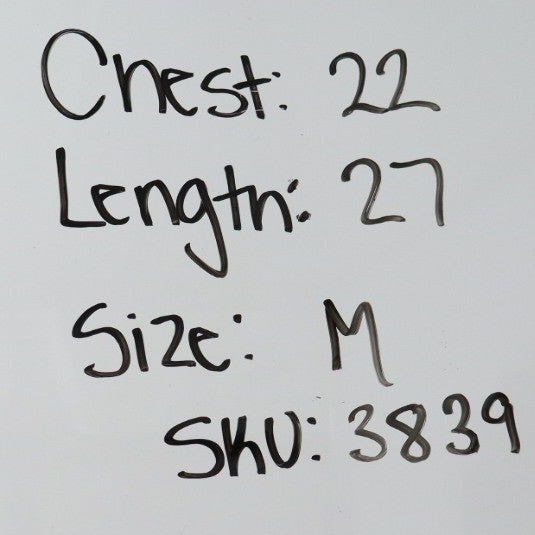 Chest: 22
Length: 27
Size: M
SKU: 3839